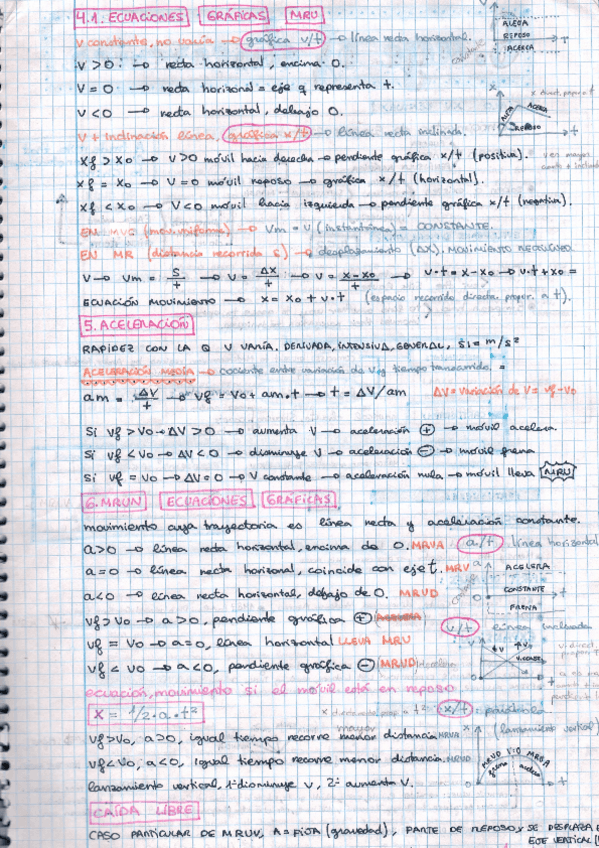 4.1. ECUACIONES GRÁFICAS MRU
V constante, no varía → gráfica v/t → línea recta horizontal.
V > 0 → recta horizontal, encima 0.
V = 0 → recta horizonal = eje q representa t.
V < 0 → recta horizontal, debajo 0.
ALEJA
REPOSO
ACERCA
V + inclinación línea. gráfica x/t → línea recta inclinada.
xf > xo → V > 0 móvil hacia derecha → pendiente gráfica x/t (positiva).
xf = xo → V = 0 móvil reposo → gráfica x/t (horizontal).
xf < xo → V < 0 móvil hacia izquierda → pendiente gráfica x/t (negativa).
ALEJA
ACERCA
REPOSO
EN MVU (mov. uniforme) → Vm = V (instantánea) = CONSTANTE.
EN MR (distancia recorrida s) → desplazamiento (ΔX), MOVIMIENTO RECTILÍNEO
V → Vm = s/t → V = ΔX/t → V = x-xo/t → v·t = x-xo → v·t+xo =
ECUACIÓN MOVIMIENTO → x = xo + v·t (espacio recorrido directa. propor. a t).
5. ACELERACIÓN
RAPIDEZ CON LA Q V VARÍA. DERIVADA, INTENSIVA, GENERAL, SI = m/s²
ACELERACIÓN MEDIA → cociente entre variación de V y tiempo transcurrido. =
am = ΔV/t → vf = vo + am·t → t = ΔV/am
ΔV = variación de V = vf-vo
Si vf > vo → ΔV > 0 → aumenta V → aceleración + → móvil acelera.
Si vf < vo → ΔV < 0 → disminuye V → aceleración - → móvil frena
Si vf = vo → ΔV = 0 → V constante → aceleración nula → móvil lleva MRU
6. MRUV ECUACIONES GRÁFICAS
movimiento cuya trayectoria es línea recta y aceleración constante.
a>0 → línea recta horizontal, encima de 0. MRUA a/t línea horizontal
a=0 → línea recta horizonal, coincide con eje t. MRU
a<0 → línea recta horizontal, debajo de 0. MRUD
a
ACELERA
CONSTANTE
FRENA
t
vf > vo → a>0, pendiente gráfica + ACELERA v/t línea inclinada
vf = vo → a=0, línea horizontal LLEVA MRU
vf < vo → a<0, pendiente gráfica - MRUD
ecuación, movimiento si el móvil está en reposo
x = 1/2·a·t²
x t² x/t parábola
vf>vo, a>0, igual tiempo recorre menor distancia. MRUA (lanzamiento vertical)
mayor
vf<vo, a<0, igual tiempo recorre menor distancia. MRUD
lanzamiento vertical, 1º disminuye v, 2º aumenta V.
MRUD V=0 MRUA
frena acelera
CAÍDA LIBRE
CASO PARTICULAR DE MRUV, A = FIJA (gravedad), PARTE DE REPOSO Y SE DESPLAZA
EJE VERTICAL